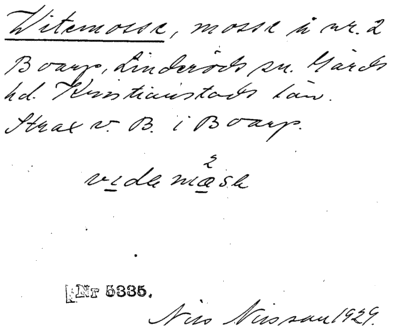 Witemosse, mosse å nr. 2
Boarp, Linderöds sn. Gärds
hd. Kristianstads län.
Strax v. B. i Boarp.
2
vide mæse
Nr 5335.
Nils Nilsson 1929.